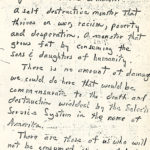 A self destructive monster that
thrives on war, racism, poverty
and desperation. A monster that
grows fat by consuming the
sons & daughters of humanity.
There is no amount of damage
we could do here that would be
commensurate to the death and
destruction wielded by the Selective
Service System in the name of
America....
There are those of us who will
not be